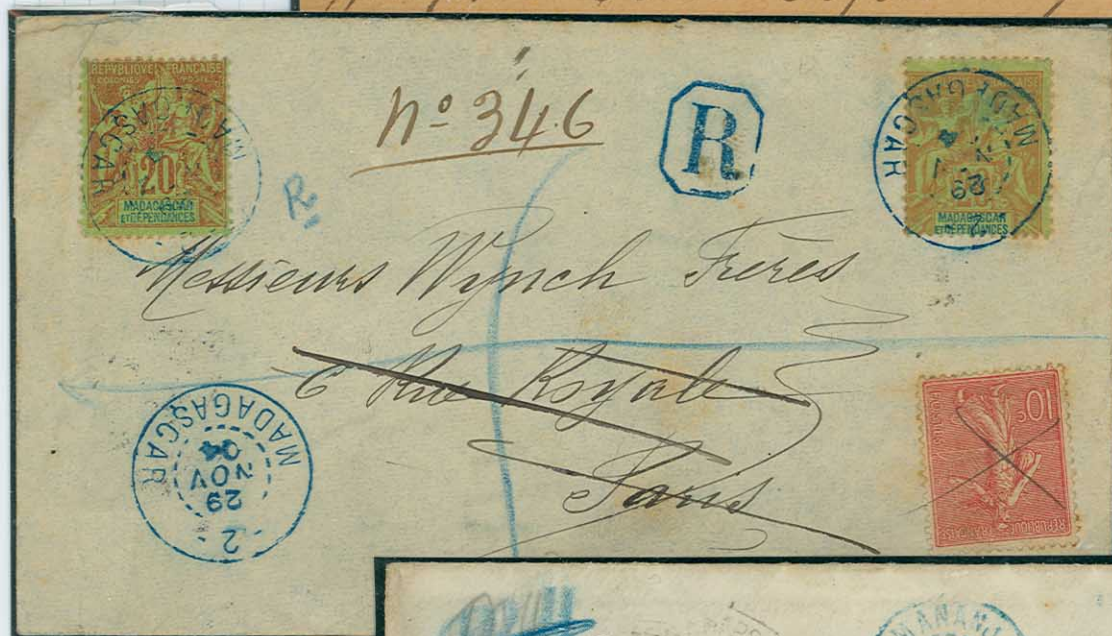 REPUBLIQUE FRANÇAISE
COLONIES POSTES
20
MADAGASCAR
ET DÉPENDANCES
MADAGASCAR
nº 346
R
R
MADAGASCAR
29
MADAGASCAR
ET DÉPENDANCES
Messieurs Wynch Frères
6 Rue Royale
Paris
MADAGASCAR
29
NOV
04
2
10c
REPUBLIQUE FRANÇAISE
MANANJ